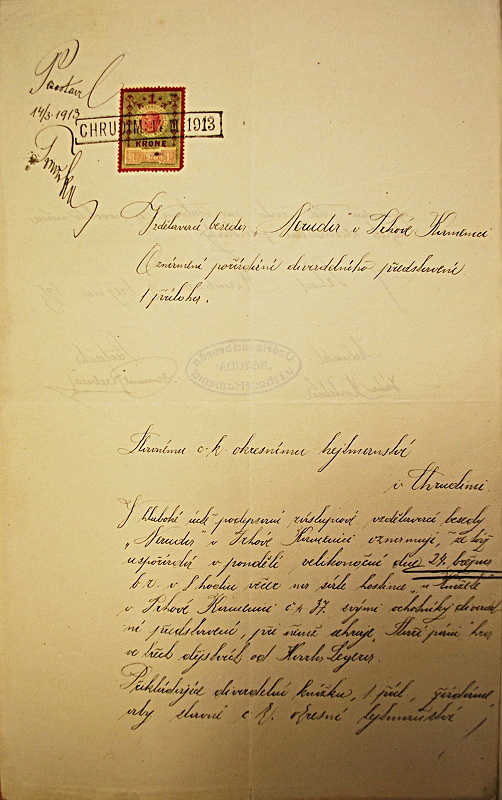 14/3 1913
CHRUDIM 1913
1
KRONE
Vzdělavací beseda „Neruda" v Trhové Kamenici
Oznámení pořádání divadelního představení
1 příloha.
Vzdělavací beseda
„NERUDA"
v Trhové Kamenici
Slavnému c. k. okresnímu hejtmanství
v Chrudimi
V hluboké úctě podepsaní zástupcové vzdělavací besedy
„Neruda" v Trhové Kamenici oznamují, že týž
uspořádá v pondělí velikonoční dne 24. března
b. r. v 8 hodin večer na sále hostince „u
v Trhové Kamenici č. p. 37 svými ochotníky divadel
ní představení, při němž sehraje „Staří páni" hra
ve třech dějstvích od Karla Légera.
Předkládajíce divadelní knížku, 1 příl., žádáme
aby slavné c. k. okresní hejtmanství